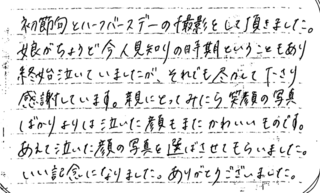 初節句とハーフバースデーの撮影をして頂きました。
娘がちょうど今人見知りの時期ということもあり
終始泣いていましたが、それでも尽かして下さり
感謝しています。親にとってみたら笑顔の写真
ばかりよりは泣いた顔もまたかわいいものです。
あえて泣いた顔の写真を選ばさせてもらいました。
いい記念になりました。ありがとうございました。